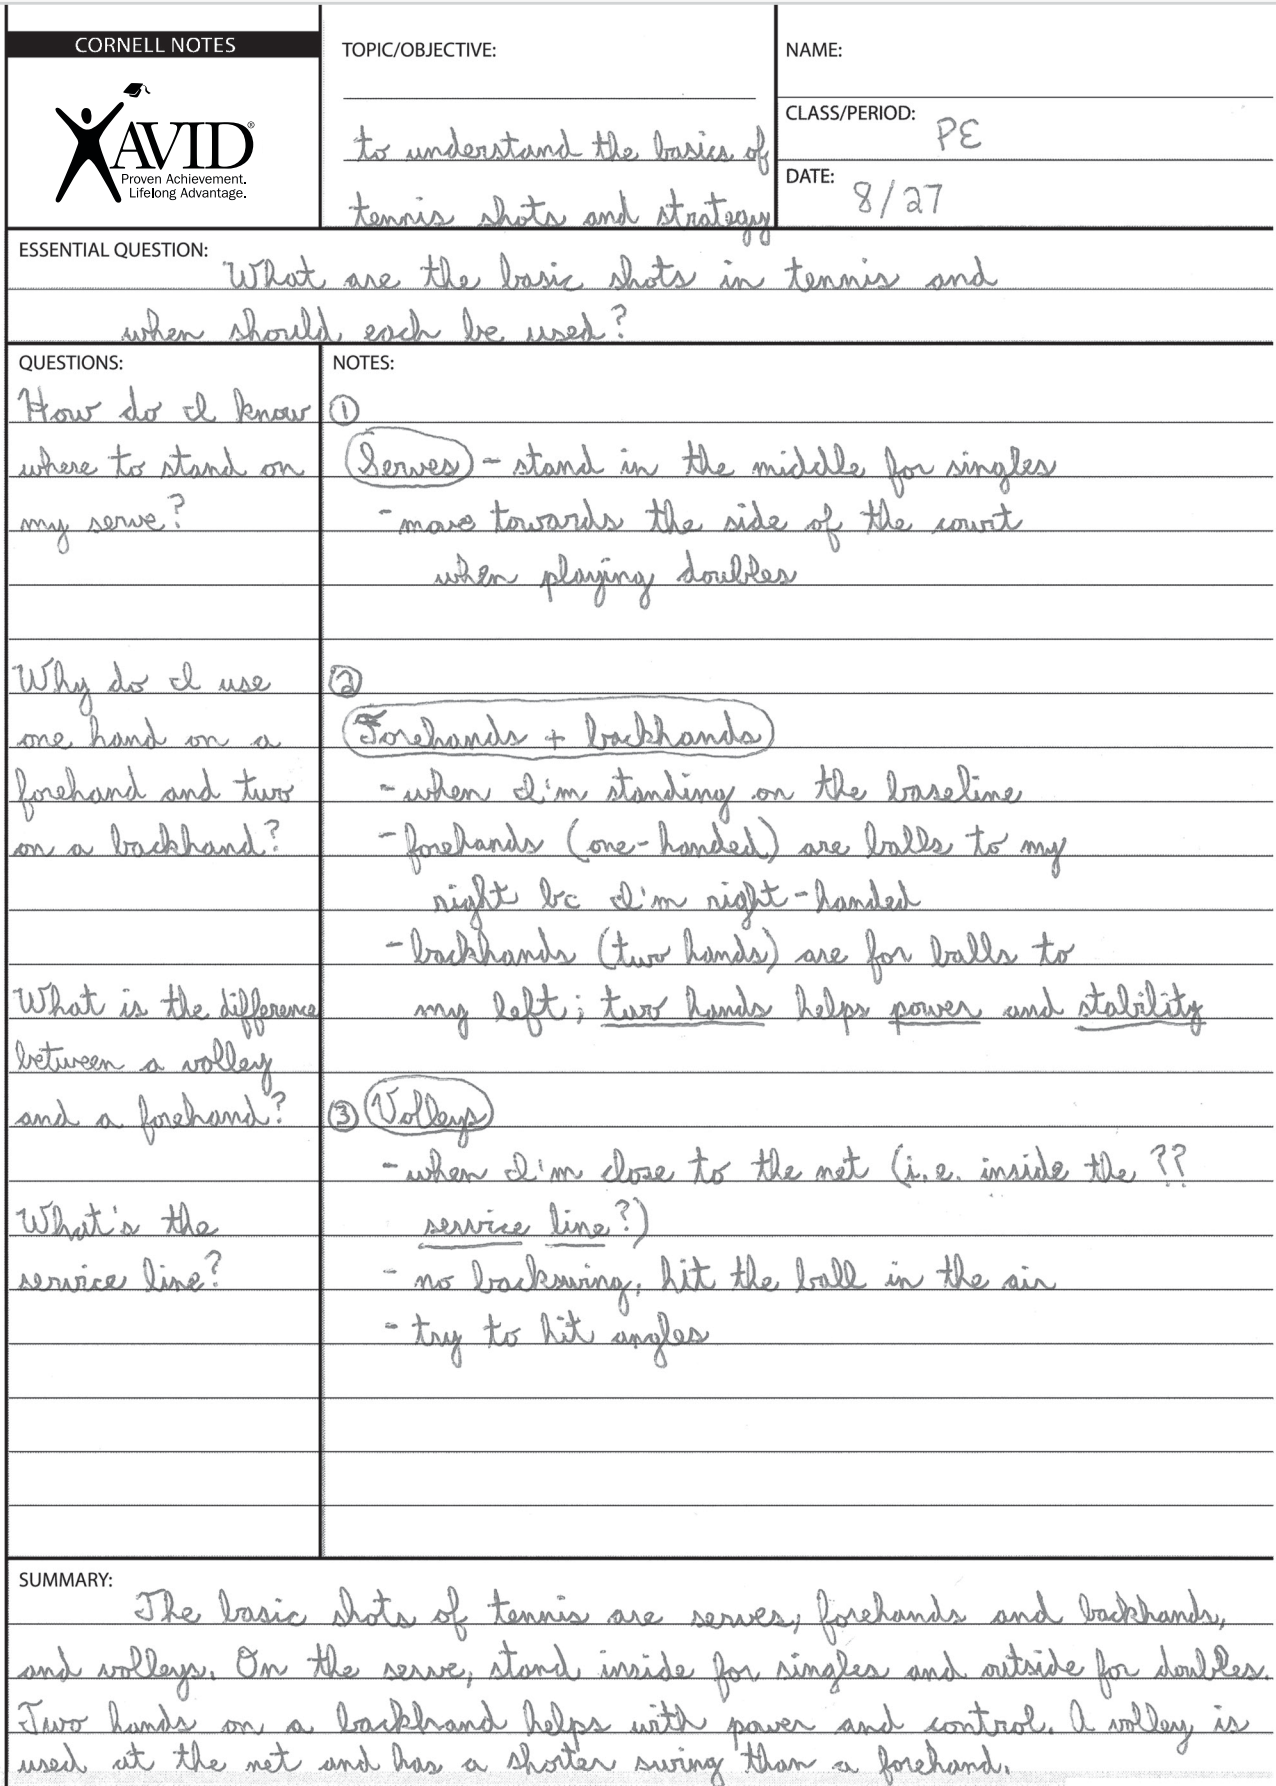 CORNELL NOTES
AVID®
Proven Achievement.
Lifelong Advantage.
TOPIC/OBJECTIVE:
to understand the basics of
tennis shots and strategy
NAME:
CLASS/PERIOD: PE
DATE: 8/27
ESSENTIAL QUESTION: What are the basic shots in tennis and
when should each be used?
QUESTIONS:
How do I know
where to stand on
my serve?
Why do I use
one hand on a
forehand and two
on a backhand?
What is the difference
between a volley
and a forehand?
What's the
service line?
NOTES:
①
Serves - stand in the middle for singles
- move towards the side of the court
when playing doubles
②
Forehands + backhands
- when I'm standing on the baseline
- forehands (one-handed) are balls to my
right bc I'm right-handed
- backhands (two hands) are for balls to
my left; two hands helps power and stability
③ Volleys
- when I'm close to the net (i.e. inside the ??
service line?)
- no backswing, hit the ball in the air
- try to hit angles
SUMMARY: The basic shots of tennis are serves, forehands and backhands,
and volleys. On the serve, stand inside for singles and outside for doubles.
Two hands on a backhand helps with power and control. A volley is
used at the net and has a shorter swing than a forehand.